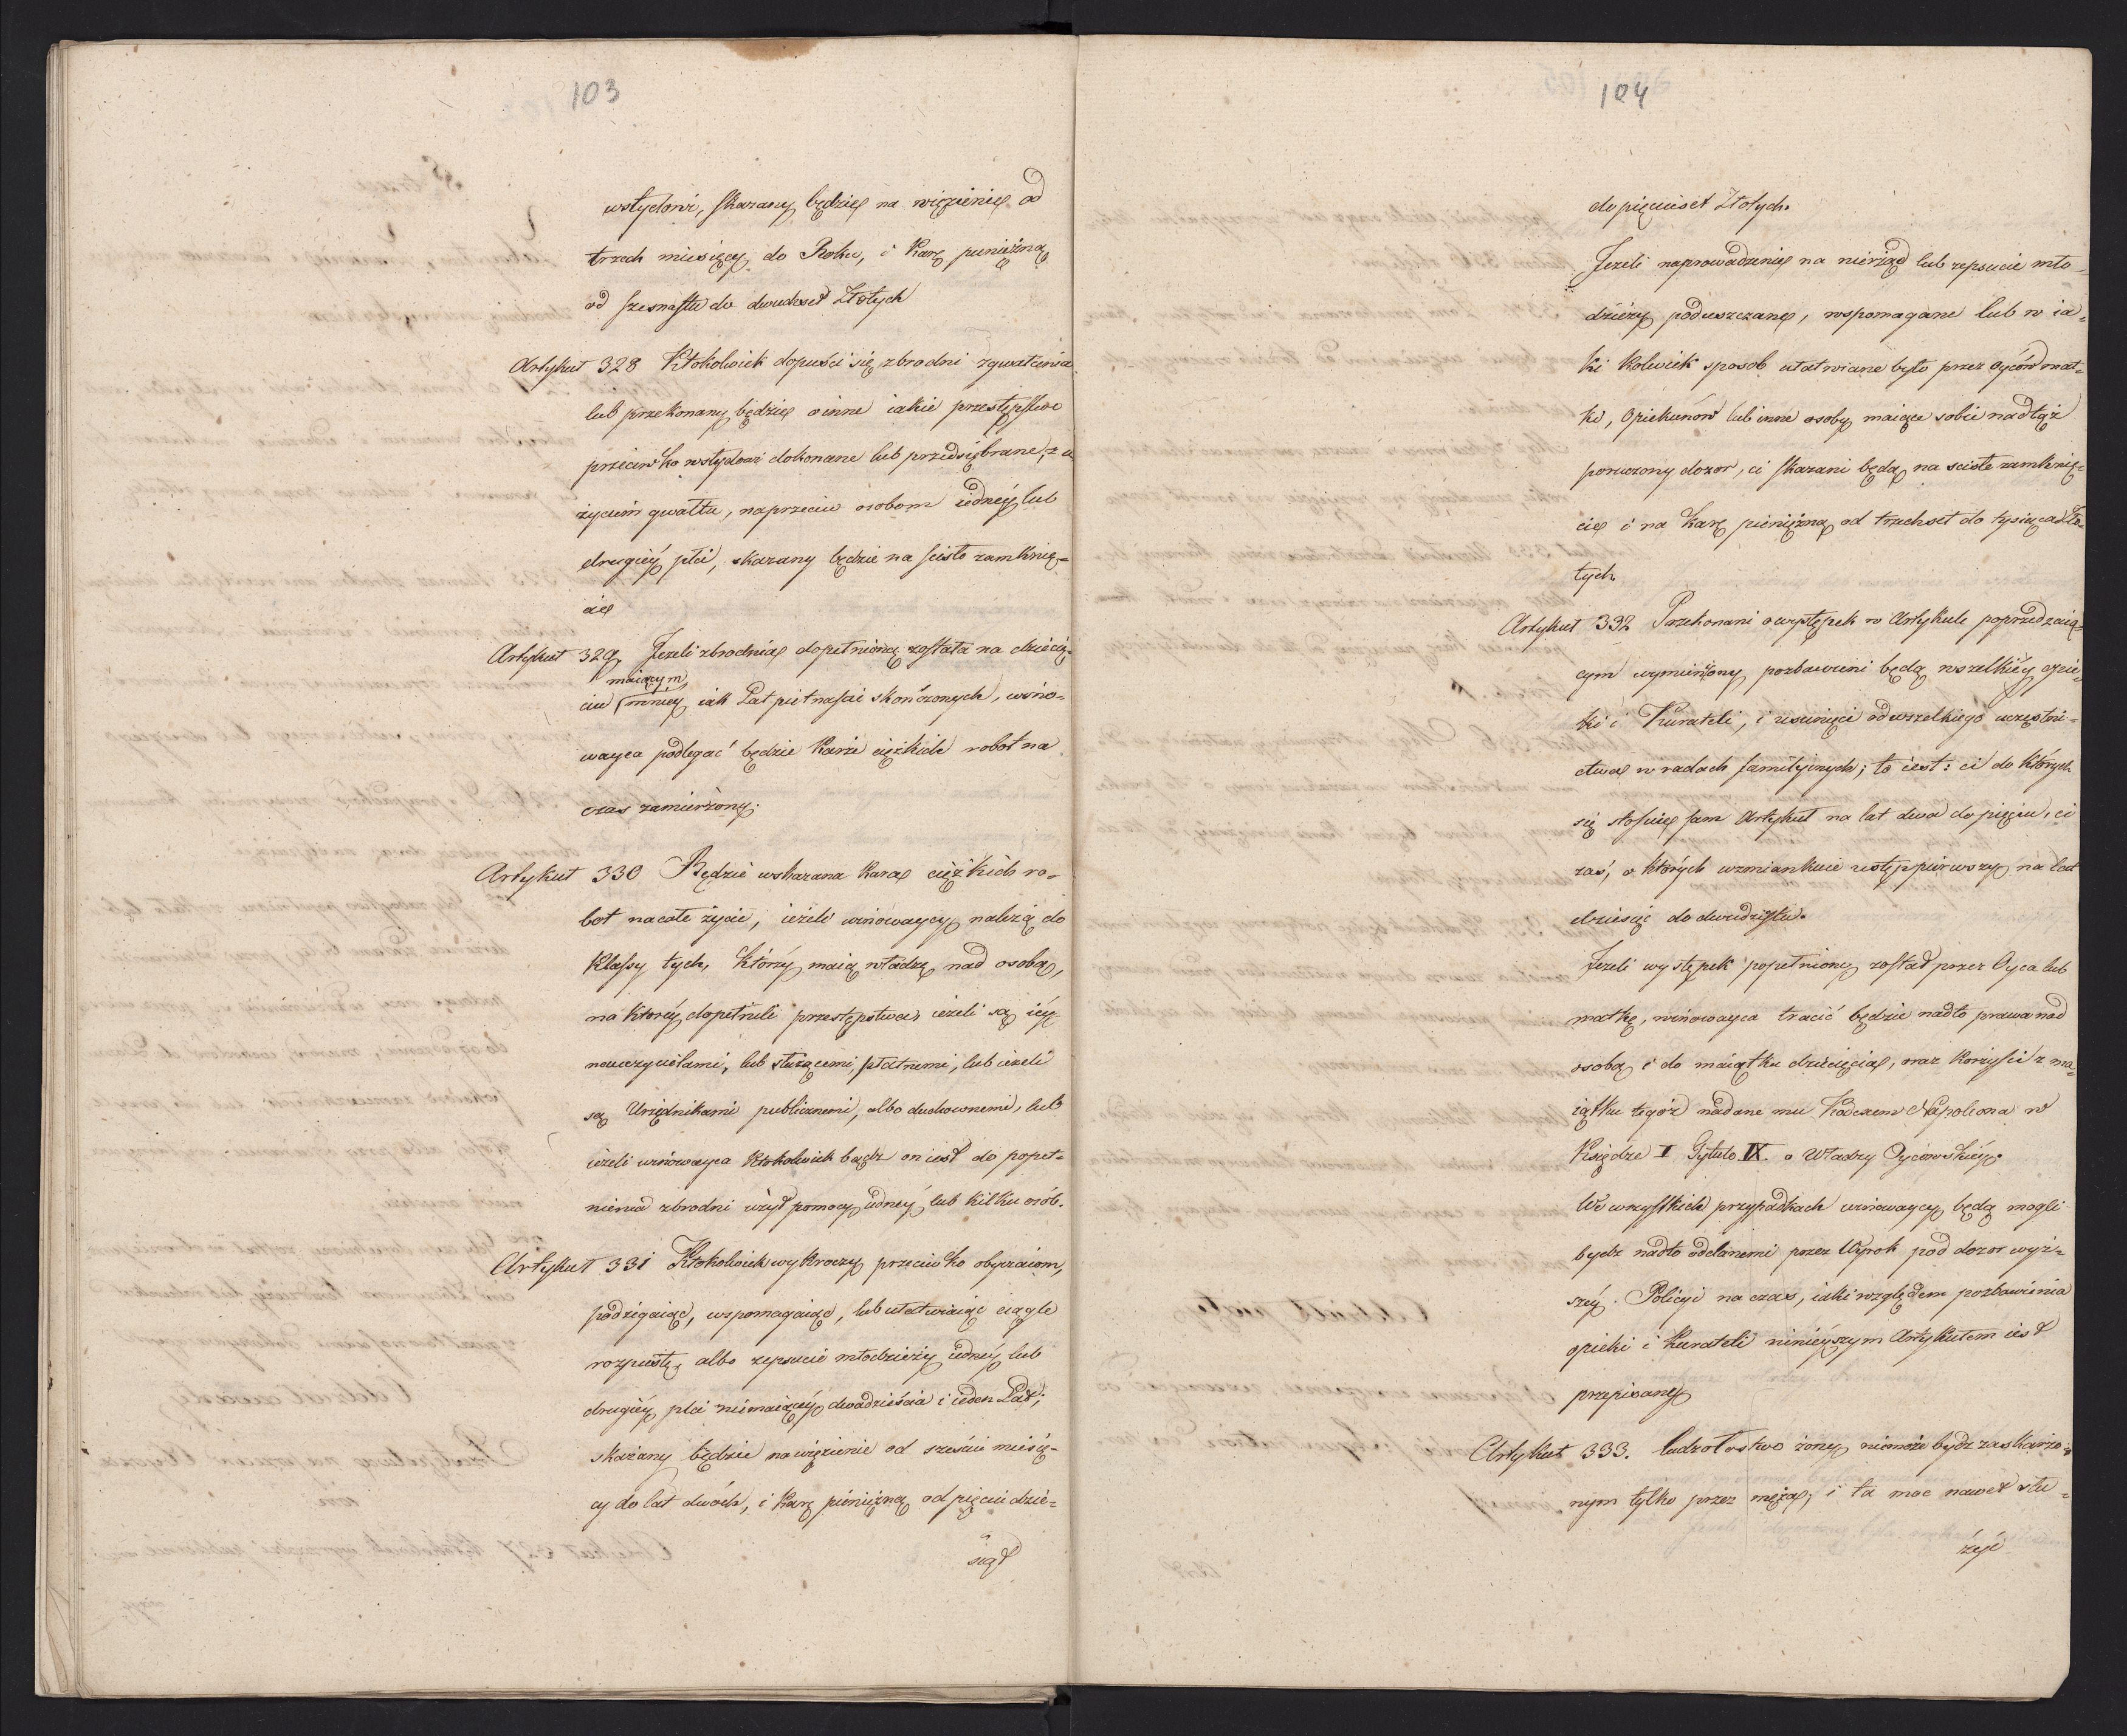 103
wstydowi, skazany będzie na więzienie od
trzech miesięcy do Roku, i karę pieniężną
od szesnastu do dwuchset Złotych
Artykuł 328 Ktokolwiek dopuści się zbrodni zgwałcenia
lub przekonany będzie o inne iakie przestępstwo
przeciwko wstydowi dokonane lub przedsiębrane, z u
życiem gwałtu, naprzeciw osobom iednéy lub
drugiéy płci, skazany będzie na scisłe zamknię=
cie
Artykuł 329 Jeżeli zbrodnia dopełnioną została na dziecię=
maiącym
ciu mniey iak Lat pietnaście skończonych, wino-
wayca podlegać będzie karze ciężkich robot na
czas zamierzony.
Artykuł 330 Będzie wskazana kara ciężkich ro-
bot na całe życie, ieżeli winowaycy należą do
Klassy tych, którzy maią władzę nad osobą,
na któréy dopełnili przestępstwa, ieżeli są iéy
nauczycielami, lub służącemi płatnemi, lub ieżeli
są Urzędnikami publicznemi, albo duchownemi, lub
ieżeli winowayca ktokolwiek bądź on iest do popeł-
nienia zbrodni użył pomocy iednéy lub kilku osób.
Artykuł 331 Ktokolwiek wykroczy przeciwko obyczaiom,
podżegaiąc, wspomagaiąc, lub ułatwiaiąc ciągle
rozpustę, albo zepsucie młodzieży iednéy lub
drugiéy płci niemaiącéy dwadzieścia i ieden Lat;
skazany będzie na więzienie od sześciu miesię-
cy do lat dwóch, i karę pieniężną od pięciudzie=
siąt
104
do pięciuset Złotych.
Jeżeli naprowadzenie na nierząd lub zepsucie mło-
dzieży poduszczane, wspomagane lub w ia=
ki kolwiek sposob ułatwiane było przez oyców mat=
ki, Opiekunów lub inne osoby maiące sobie nad tąż
poruczony dozor, ci skazani będą na scisłe zamknię=
cie i na karę pieniężną od trzechset do tysiąca Zło
tych
Artykuł 332 Przekonani o występek w Artykule poprzedzaią=
cym wymieniony, pozbawieni będą wszelkiéy opie=
ki i Kurateli, i usunięci od wszelkiego uczestni=
ctwa w radach familyinych; to iest: ci do których
się stosuie sam Artykuł na lat dwa do pięciu, ci
zaś, o których wzmiankuie ustęp pierwszy na lat
dziesięć do dwudziestu.
Jeżeli występek popełniony został przez Oyca lub
matkę, winowayca tracić będzie nadto prawa nad
osobą i do maiątku dziecięcia, oraz korzyści z ma=
iątku tegóż nadane mu Kodexem Napoleona w
Księdze I Tytule IX. o Władzy Oycowskiéy.
We wszystkich przypadkach winowaycy będą mogli
bydz nadto oddanemi przez Wyrok pod dozor wyż=
széy Policyi na czas, iaki względem pozbawienia
opieki i kurateli ninieyszym Artykułem iest
przepisany
Artykuł 333. Cudzołostwo żony niemoże bydz zaskarżo=
nym tylko przez męża; i ta moc nawet słu=
żyć